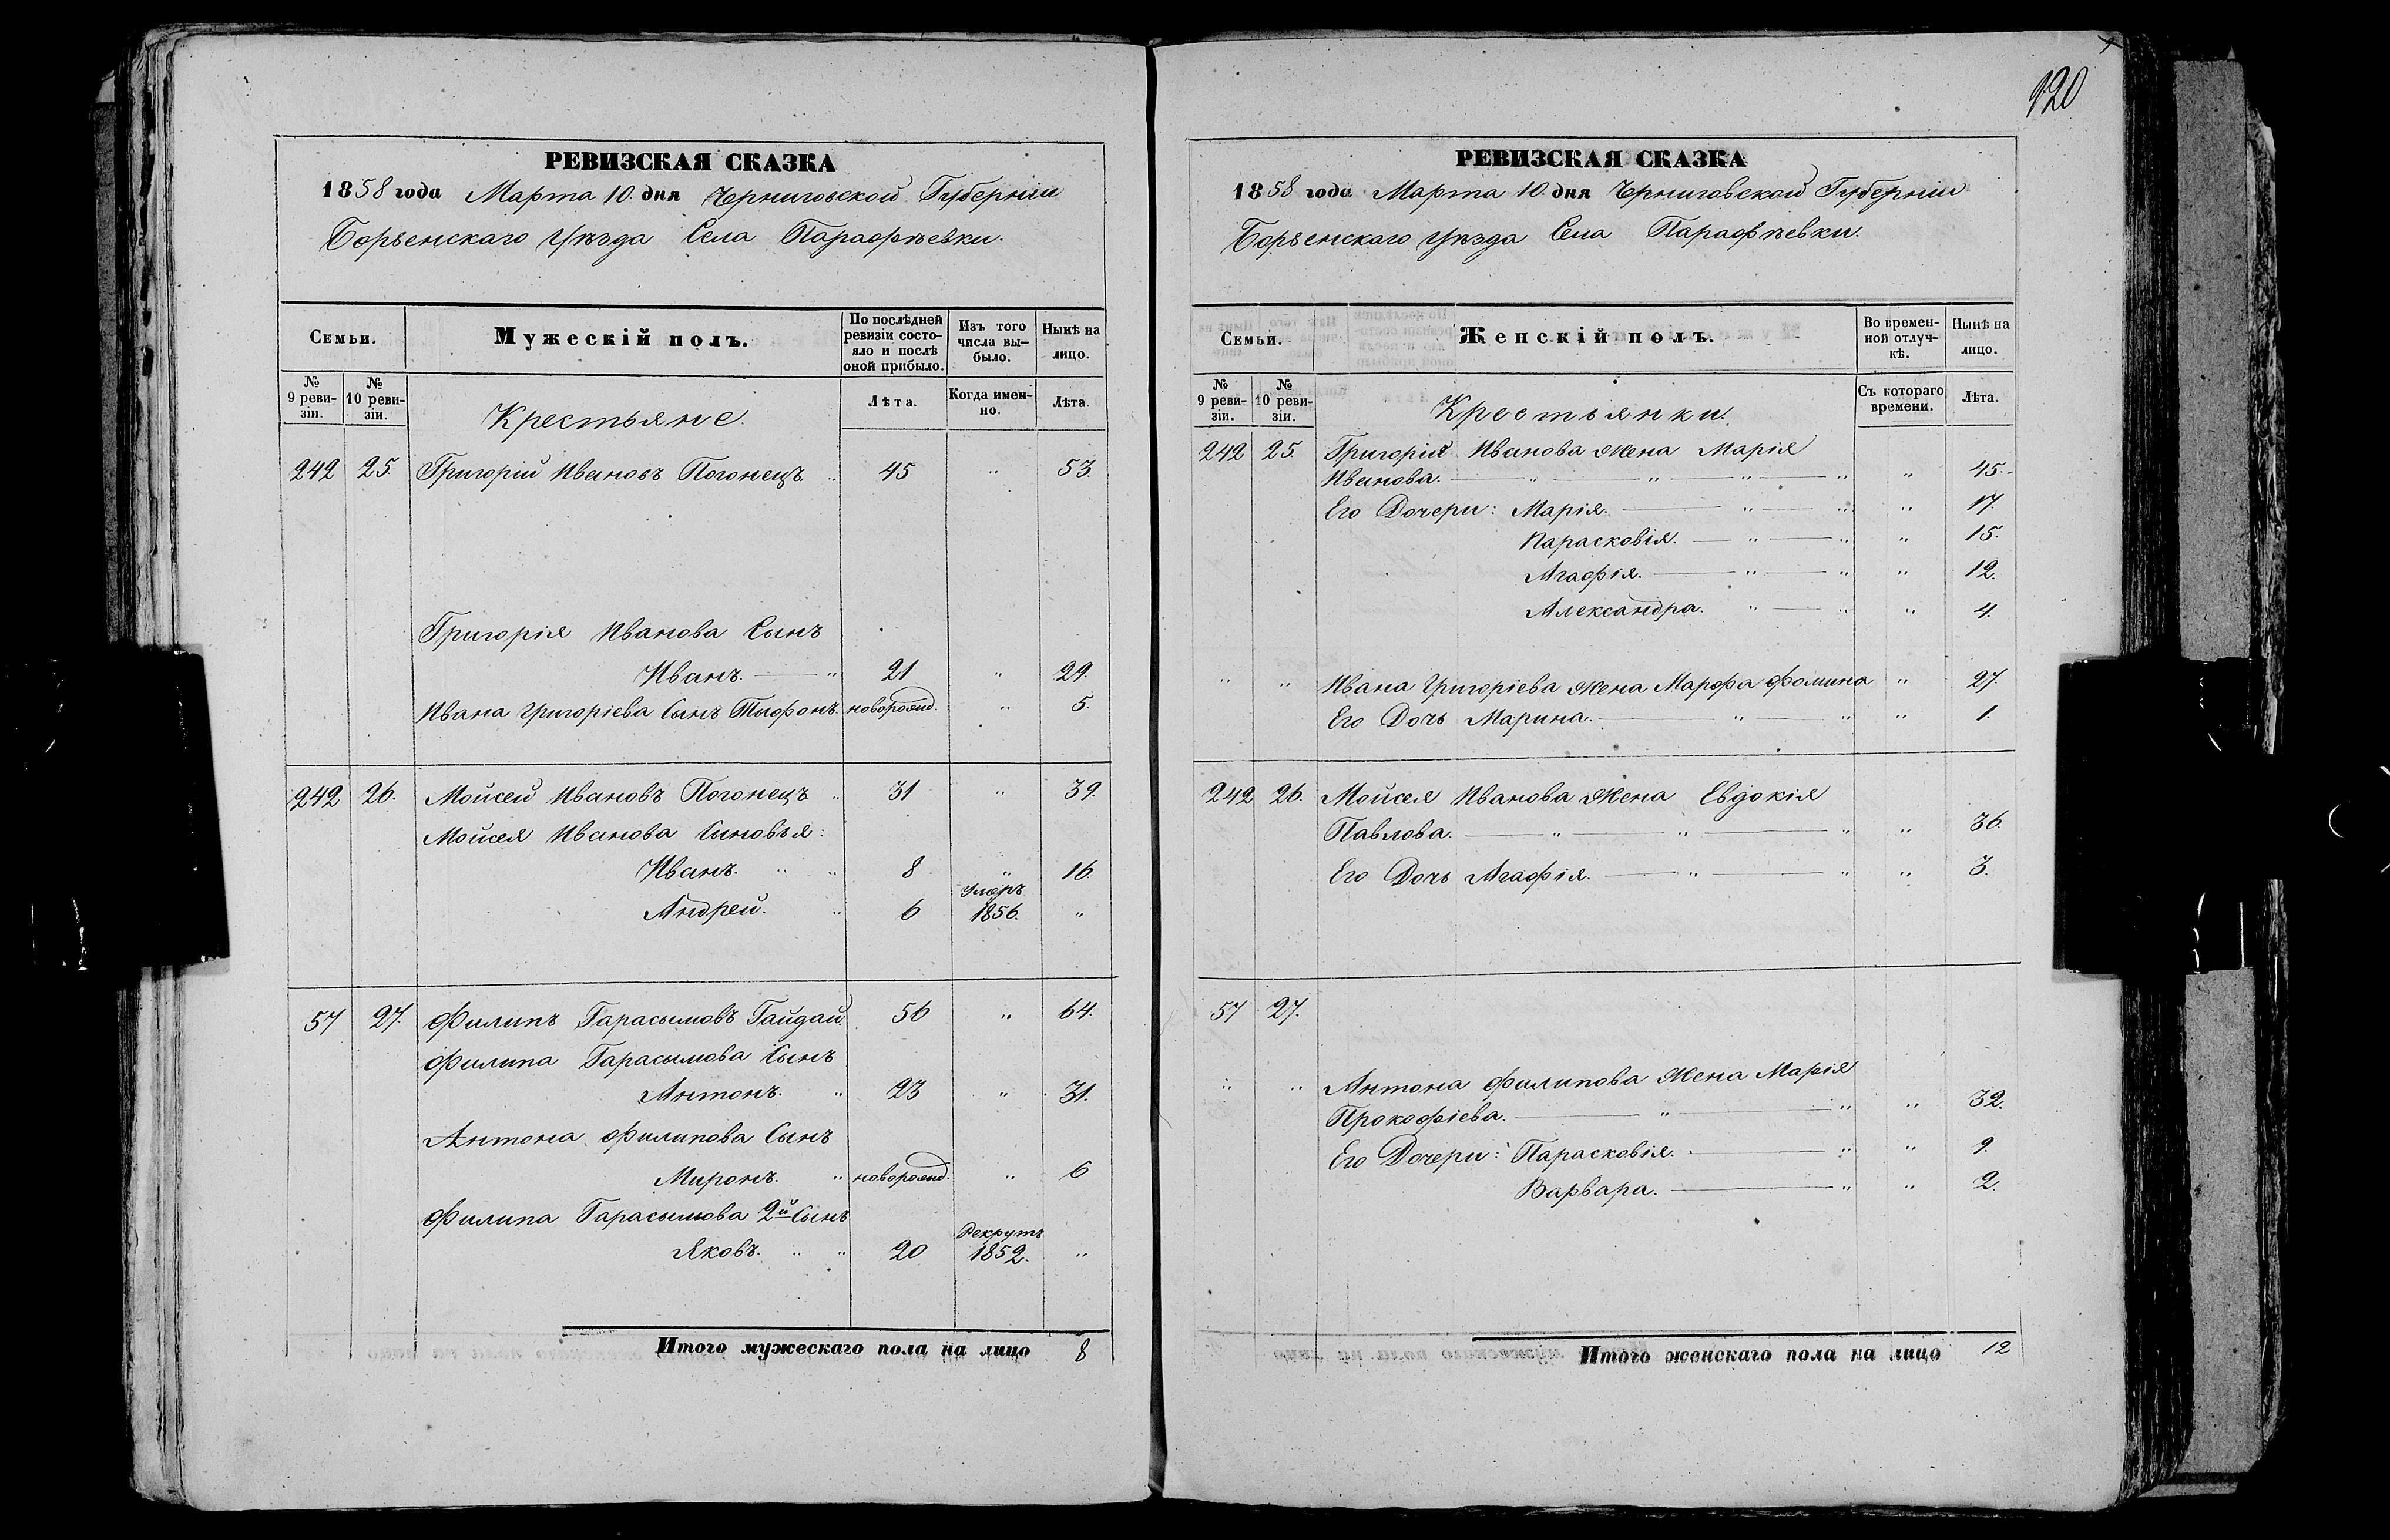 120
РЕВИЗСКАЯ СКАЗКА
1858 года Марта 10. дня Черниговской Губерніи
Борзенскаго Уѣзда Села Парафѣевки.
Семьи.
Мужескій полъ.
По послѣдней ревизіи состояло и послѣ оной прибыло.
Изъ того числа выбыло.
Нынѣ на лицо.
№ 9 ревизіи.
№ 10 ревизіи.
Лѣта.
Когда именно.
Лѣта.
Крестьяне.
242 25. Григорій Ивановъ Погонецъ „ 45 „ 53.
Григорія Иванова Сынъ
Иванъ. — „ 21 „ 29.
Ивана Григоріева Сынъ Тыфонъ. новорожд. „ 5.
242 26. Мойсей Ивановъ Погонецъ „ 31 „ 39.
Мойсея Иванова Сыновья:
Иванъ. „ „ 8 „ 16.
Андрей. „ 6 умеръ 1856. „
57 27. Филипъ Гарасымовъ Гайдай 56 „ 64.
Филипа Гарасымова Сынъ
Антонъ. „ 23 „ 31.
Антона Филипова Сынъ
Миронъ. „ новорожд. „ 6
Филипа Гарасымова 2й Сынъ
Яковъ. „ „ 20 Рекрутъ 1852. „
Итого мужескаго пола на лицо 8
РЕВИЗСКАЯ СКАЗКА
1858 года Марта 10. дня Черниговской Губерніи
Борзенскаго Уѣзда Села Парафѣевки.
Семьи.
Женскій полъ.
Во временной отлучкѣ.
Нынѣ на лицо.
№ 9 ревизіи.
№ 10 ревизіи.
Съ котораго времени.
Лѣта.
Крестьянки.
242 25. Григорія Иванова Жена Марія
Иванова. — „ — „ — „ — „ „ 45.
Его Дочери: Марія. — „ — „ „ 17.
Парасковія. — „ — „ „ 15.
Агафія. — „ — „ „ 12.
Александра. „ — „ „ 4.
„ „ Ивана Григоріева Жена Марфа Фомина „ 27.
Его Дочь Марина. — „ — „ „ 1.
242 26. Мойсея Иванова Жена Евдокія
Павлова. — „ — „ — „ „ 36.
Его Дочь Агафія. — „ — „ „ 3.
57 27.
„ „ Антона Филипова Жена Марія
Прокофіева. — „ — „ „ 32.
Его Дочери: Парасковія. — „ „ 9.
Варвара. — „ „ 2.
Итого женскаго пола на лицо 12